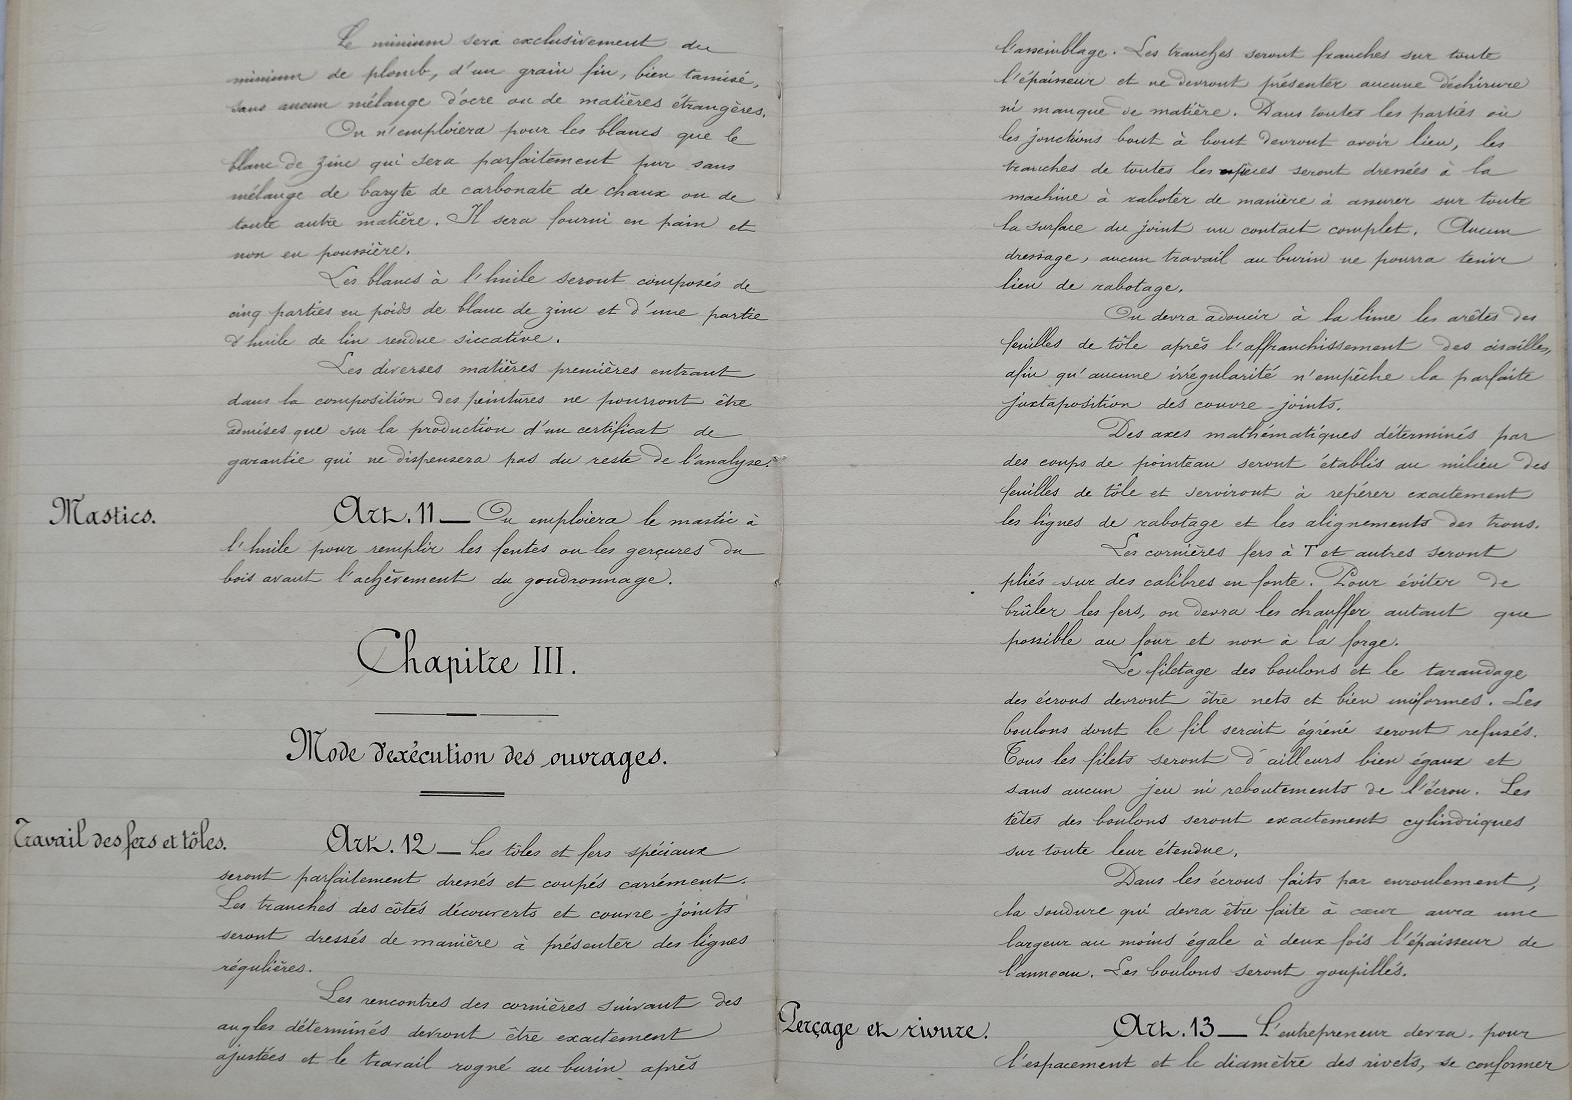 Le minium sera exclusivement du
minium de plomb, d'un grain fin, bien tamisé,
sans aucun mélange d'ocre ou de matières étrangères.
On n'emploiera pour les blancs que le
blanc de zinc qui sera parfaitement pur sans
mélange de baryte de carbonate de chaux ou de
toute autre matière. Il sera fourni en pain et
non en poussière.
Les blancs à l'huile seront composés de
cinq parties en poids de blanc de zinc et d'une partie
d'huile de lin rendue siccative.
Les diverses matières premières entrant
dans la composition des peintures ne pourront être
admises que sur la production d'un certificat de
garantie qui ne dispensera pas du reste de l'analyse.
Mastics.
Art. 11 — On emploiera le mastic à
l'huile pour remplir les fentes ou les gerçures du
bois avant l'achèvement du goudronnage.
Chapitre III.
Mode d'exécution des ouvrages.
Travail des fers et tôles.
Art. 12 — Les tôles et fers spéciaux
seront parfaitement dressés et coupés carrément.
Les tranches des côtés découverts et couvre-joints
seront dressés de manière à présenter des lignes
régulières.
Les rencontres des cornières suivant des
angles déterminés devront être exactement
ajustées et le travail rogné au burin après
l'assemblage. Les tranches seront franches sur toute
l'épaisseur et ne devront présenter aucune déchirure
ni manque de matière. Dans toutes les parties où
les jonctions bout à bout devront avoir lieu, les
tranches de toutes les pièces seront dressées à la
machine à raboter de manière à assurer sur toute
la surface du joint un contact complet. Aucun
dressage, aucun travail au burin ne pourra tenir
lieu de rabotage.
On devra adoucir à la lime les arêtes des
feuilles de tôle après l'affranchissement des cisailles,
afin qu'aucune irrégularité n'empêche la parfaite
juxtaposition des couvre-joints.
Des axes mathématiques déterminés par
des coups de pointeau seront établis au milieu des
feuilles de tôle et serviront à repérer exactement
les lignes de rabotage et les alignements des trous.
Les cornières fers à T et autres seront
pliés sur des calibres en fonte. Pour éviter de
brûler les fers, on devra les chauffer autant que
possible au four et non à la forge.
Le filetage des boulons et le taraudage
des écrous devront être nets et bien uniformes. Les
boulons dont le fil serait égréné seront refusés.
Tous les filets seront d'ailleurs bien égaux et
sans aucun jeu ni reboutements de l'écrou. Les
têtes des boulons seront exactement cylindriques
sur toute leur étendue.
Dans les écrous faits par enroulement,
la soudure qui devra être faite à cœur aura une
largeur au moins égale à deux fois l'épaisseur de
l'anneau. Les boulons seront goupillés.
Perçage et rivure.
Art. 13 — L'entrepreneur devra, pour
l'espacement et le diamètre des rivets, se conformer